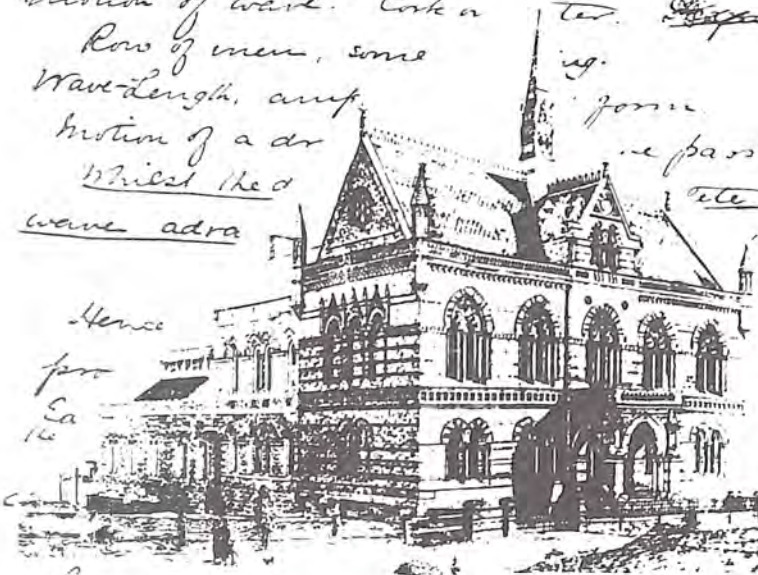 Motion of wave. Cork on ter.
Row of men, some ing.
Wave-Length, amp form
Motion of a dr pass
Whilst the d
wave adva
Hence
pro
Ea